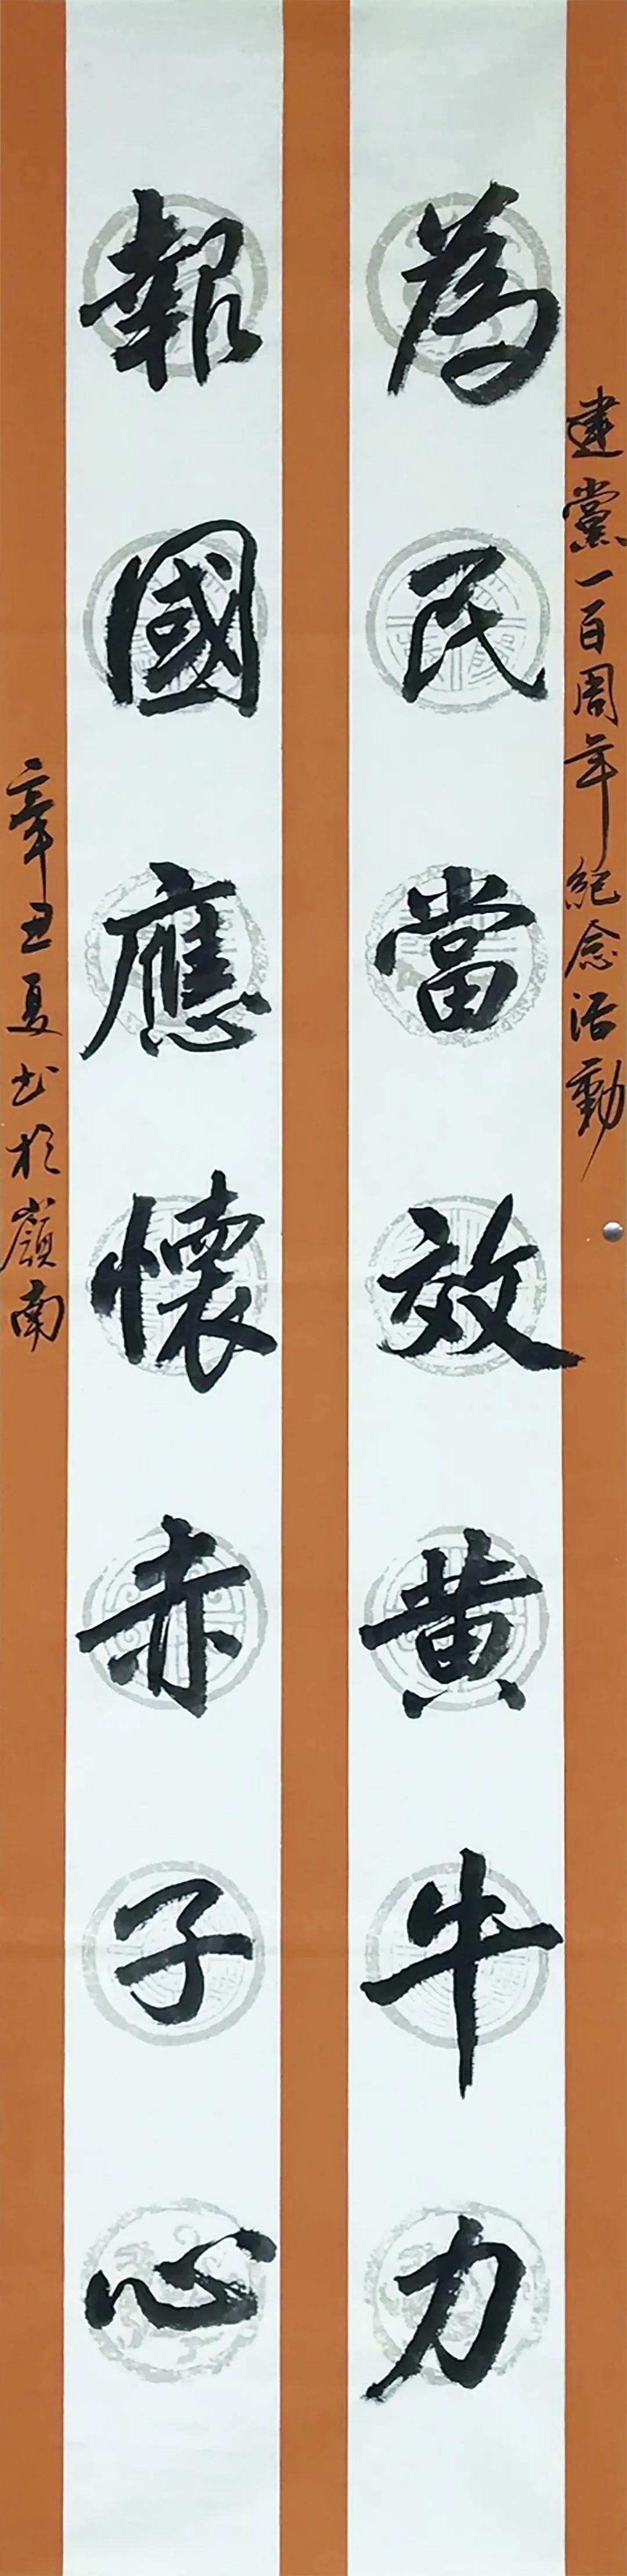 建黨一百周年紀念活動
為民當效黄牛力
報國應懷赤子心
辛丑夏书於嶺南